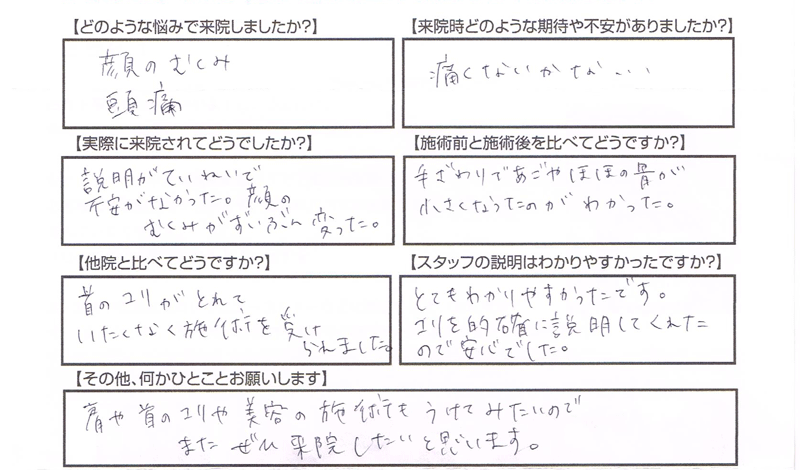 【どのような悩みで来院しましたか?】
顔のむくみ
頭痛
【来院時どのような期待や不安がありましたか?】
痛くないかな...
【実際に来院されてどうでしたか?】
説明がていねいで
不安がなかった。顔の
むくみがずいぶん変った。
【施術前と施術後を比べてどうですか?】
手ざわりであごやほほの骨が
小さくなったのがわかった。
【他院と比べてどうですか?】
首のコリがとれて
いたくなく施術を受け
られました。
【スタッフの説明はわかりやすかったですか?】
とてもわかりやすかったです。
コリを的確に説明してくれた
ので安心でした。
【その他、何かひとことお願いします】
肩や首のコリや美容の施術もうけてみたいので
またぜひ来院したいと思います。